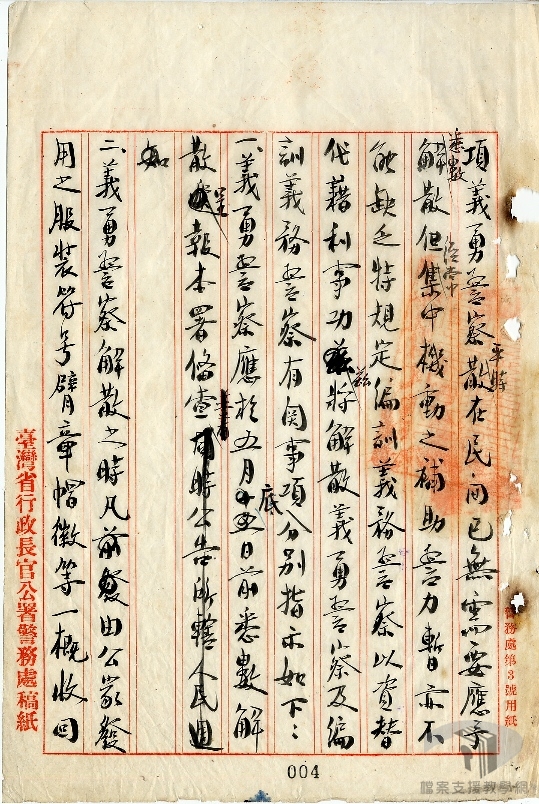 項義勇警察散在民间已無需要應予
平時
悉數
解散但集中機動之補助警力暫亦不
經常中
能缺乏特規定編訓義務警察以資替
代藉利事功茲將解散義勇警察及編
訓義務警察有関事項分別指示如下:
一、義勇警察應於五月底前悉數解
散呈報本署備查同時公告所轄人民週
知
二、義勇警察解散之時凡前發由公家發
用之服裝符号臂章帽徽等一概收回
臺灣省行政長官公署警務處稿紙
警務處第3號用紙
004
檔案支援教學網